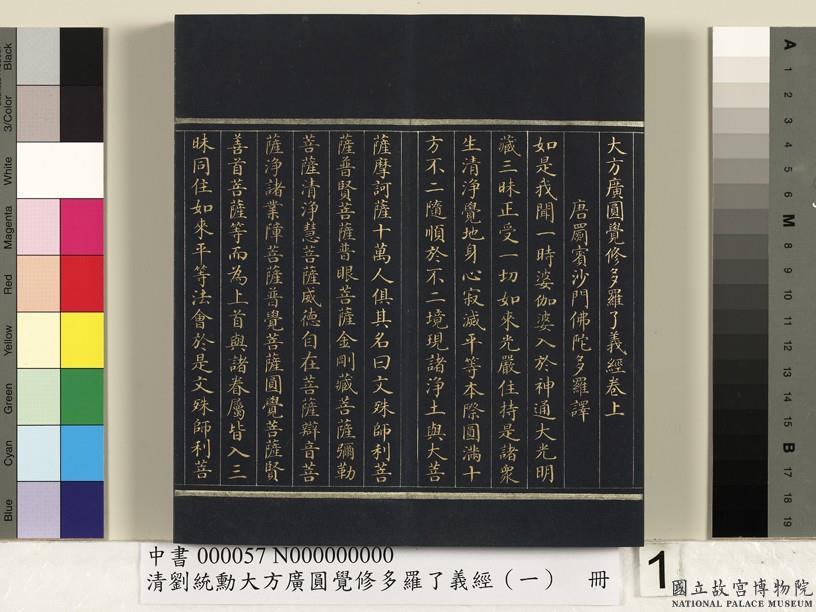 大方廣圓覺修多羅了義經卷上
唐罽賓沙門佛陀多羅譯
如是我聞一時婆伽婆入於神通大光明
藏三昧正受一切如來光嚴住持是諸衆
生清淨覺地身心寂滅平等本際圓滿十
方不二隨順於不二境現諸淨土與大菩
薩摩訶薩十萬人俱其名曰文殊師利菩
薩普賢菩薩普眼菩薩金剛藏菩薩彌勒
菩薩清淨慧菩薩威德自在菩薩辯音菩
薩淨諸業障菩薩普覺菩薩圓覺菩薩賢
善首菩薩等而為上首與諸眷屬皆入三
昧同住如來平等法會於是文殊師利菩
中書 000057 N000000000
清劉統勳大方廣圓覺修多羅了義經（一） 冊
1
國立故宮博物院
NATIONAL PALACE MUSEUM
Black
3/Color
White
Magenta
Red
Yellow
Green
Cyan
Blue
A
1
2
3
4
5
6
M
8
9
10
11
12
13
14
15
B
17
18
19